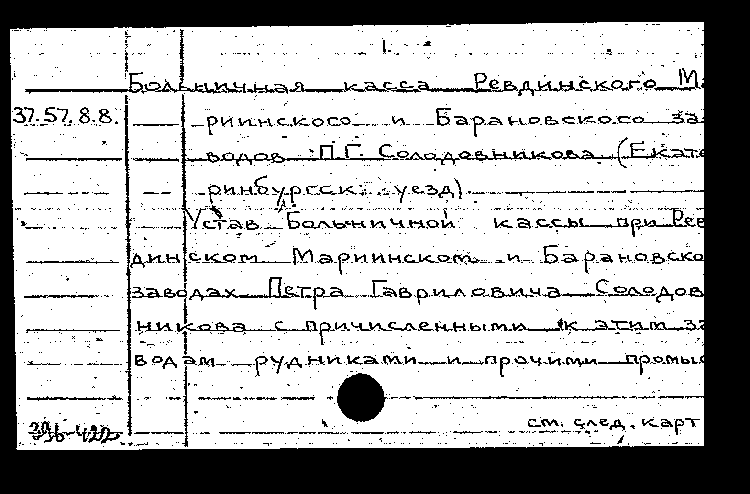 1.
Больничная касса Ревдинского Ма
37.57.8.8. риинского и Барановского за
водов П.Г. Солодовникова (Екате
ринбургск. уезд)
Устав Больничной кассы при Рев
динском Мариинском и Барановско
заводах Петра Гавриловича Солодов
никова с причисленными к этим за
водам рудниками и прочими промыс
см. след. карт